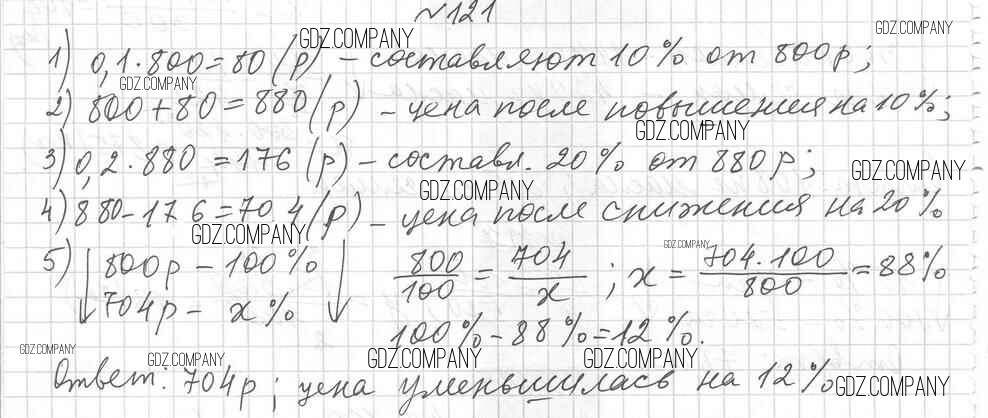 №121
1) 0,1·800=80 (р) – составляют 10% от 800р;
2) 800+80=880 (р) – цена после повышения на 10%;
3) 0,2·880=176 (р) – составл. 20% от 880р;
4) 880-176=704 (р) – цена после снижения на 20%
5) ↓ 800р – 100% ↓ 800/100 = 704/x ; x = 704·100/800 = 88%
704р – x%
100% - 88% = 12%.
Ответ: 704р; цена уменьшилась на 12%
GDZ.COMPANY
GDZ.COMPANY
GDZ.COMPANY
GDZ.COMPANY
GDZ.COMPANY
GDZ.COMPANY
GDZ.COMPANY
GDZ.COMPANY
GDZ.COMPANY
GDZ.COMPANY
GDZ.COMPANY
GDZ.COMPANY
GDZ.COMPANY